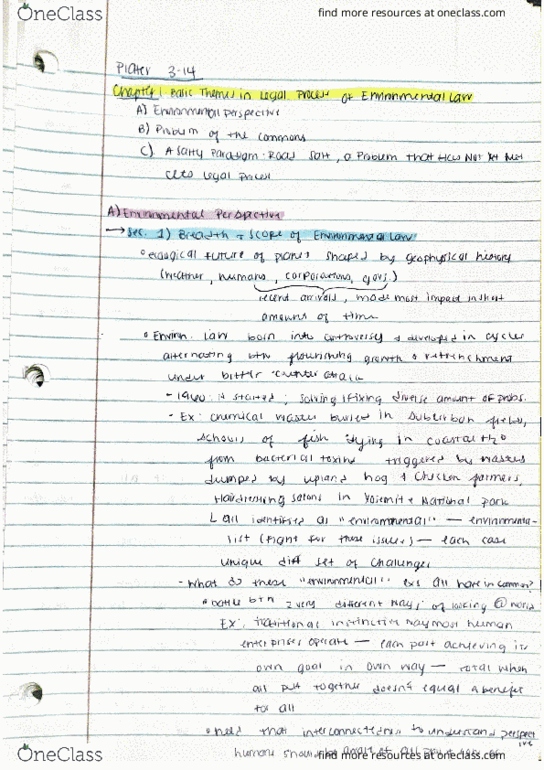 OneClass
find more resources at oneclass.com
Plater 3-14
Chapter 1 Basic Themes in Legal Process of Environmental Law
A) Environmental perspective
B) Problem of the commons
C) A Salty Paradigm: Road Salt, a Problem that Has Not Yet Met
Legal Process
A) Environmental Perspective
→ Sec. 1) Breadth + Scope of Environmental Law
ecological future of planet shaped by geophysical history
(weather, humans, corporations, govs.)
recent arrivals, made most impact in short
amounts of time
Environ. Law born into controversy & developed in cycles
alternating btw flourishing growth & retrenchment
under bitter counter attack
- started; solving/fixing diverse amount of probs.
- Ex: chemical wastes buried in suburban fields,
schools of fish dying in coastal H2O
from bacterial toxins triggered by wastes
dumped by upland hog & chicken farmers,
Hairdressing salons in Yosemite National Park
L all identified as "environmental" — environmenta-
list (fight for these issues) — each case
unique diff set of challenges
- What do these "environmental" exs all have in common?
battle btw 2 very different ways of looking @ world
Ex: traditional instinctive way most human
enterprises operate — each part achieving its
own goal in own way — total when
all put together doesn't equal a benefit
to all
need that interconnectedness to understand perspect
ive
humans should be
OneClass
find more resources at oneclass.com